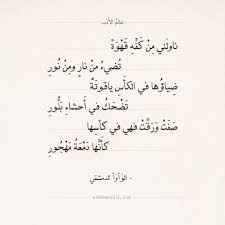 عالم الأدب
ناولني مِنْ كَفِّهِ قَهْوَةً
تُضيءُ مِنْ نَارٍ ومِنْ نُورِ
ضِياؤُها في الكَأْسِ ياقُوتَةٌ
تَضْحَكُ في أَحشاءِ بَلُّورِ
صَفَتْ وَرَقَّتْ فهي في كاسِها
كَأَنَّها دَمْعَةُ مَهْجُورِ
- الوَأواء الدمشقي
adabworld.com